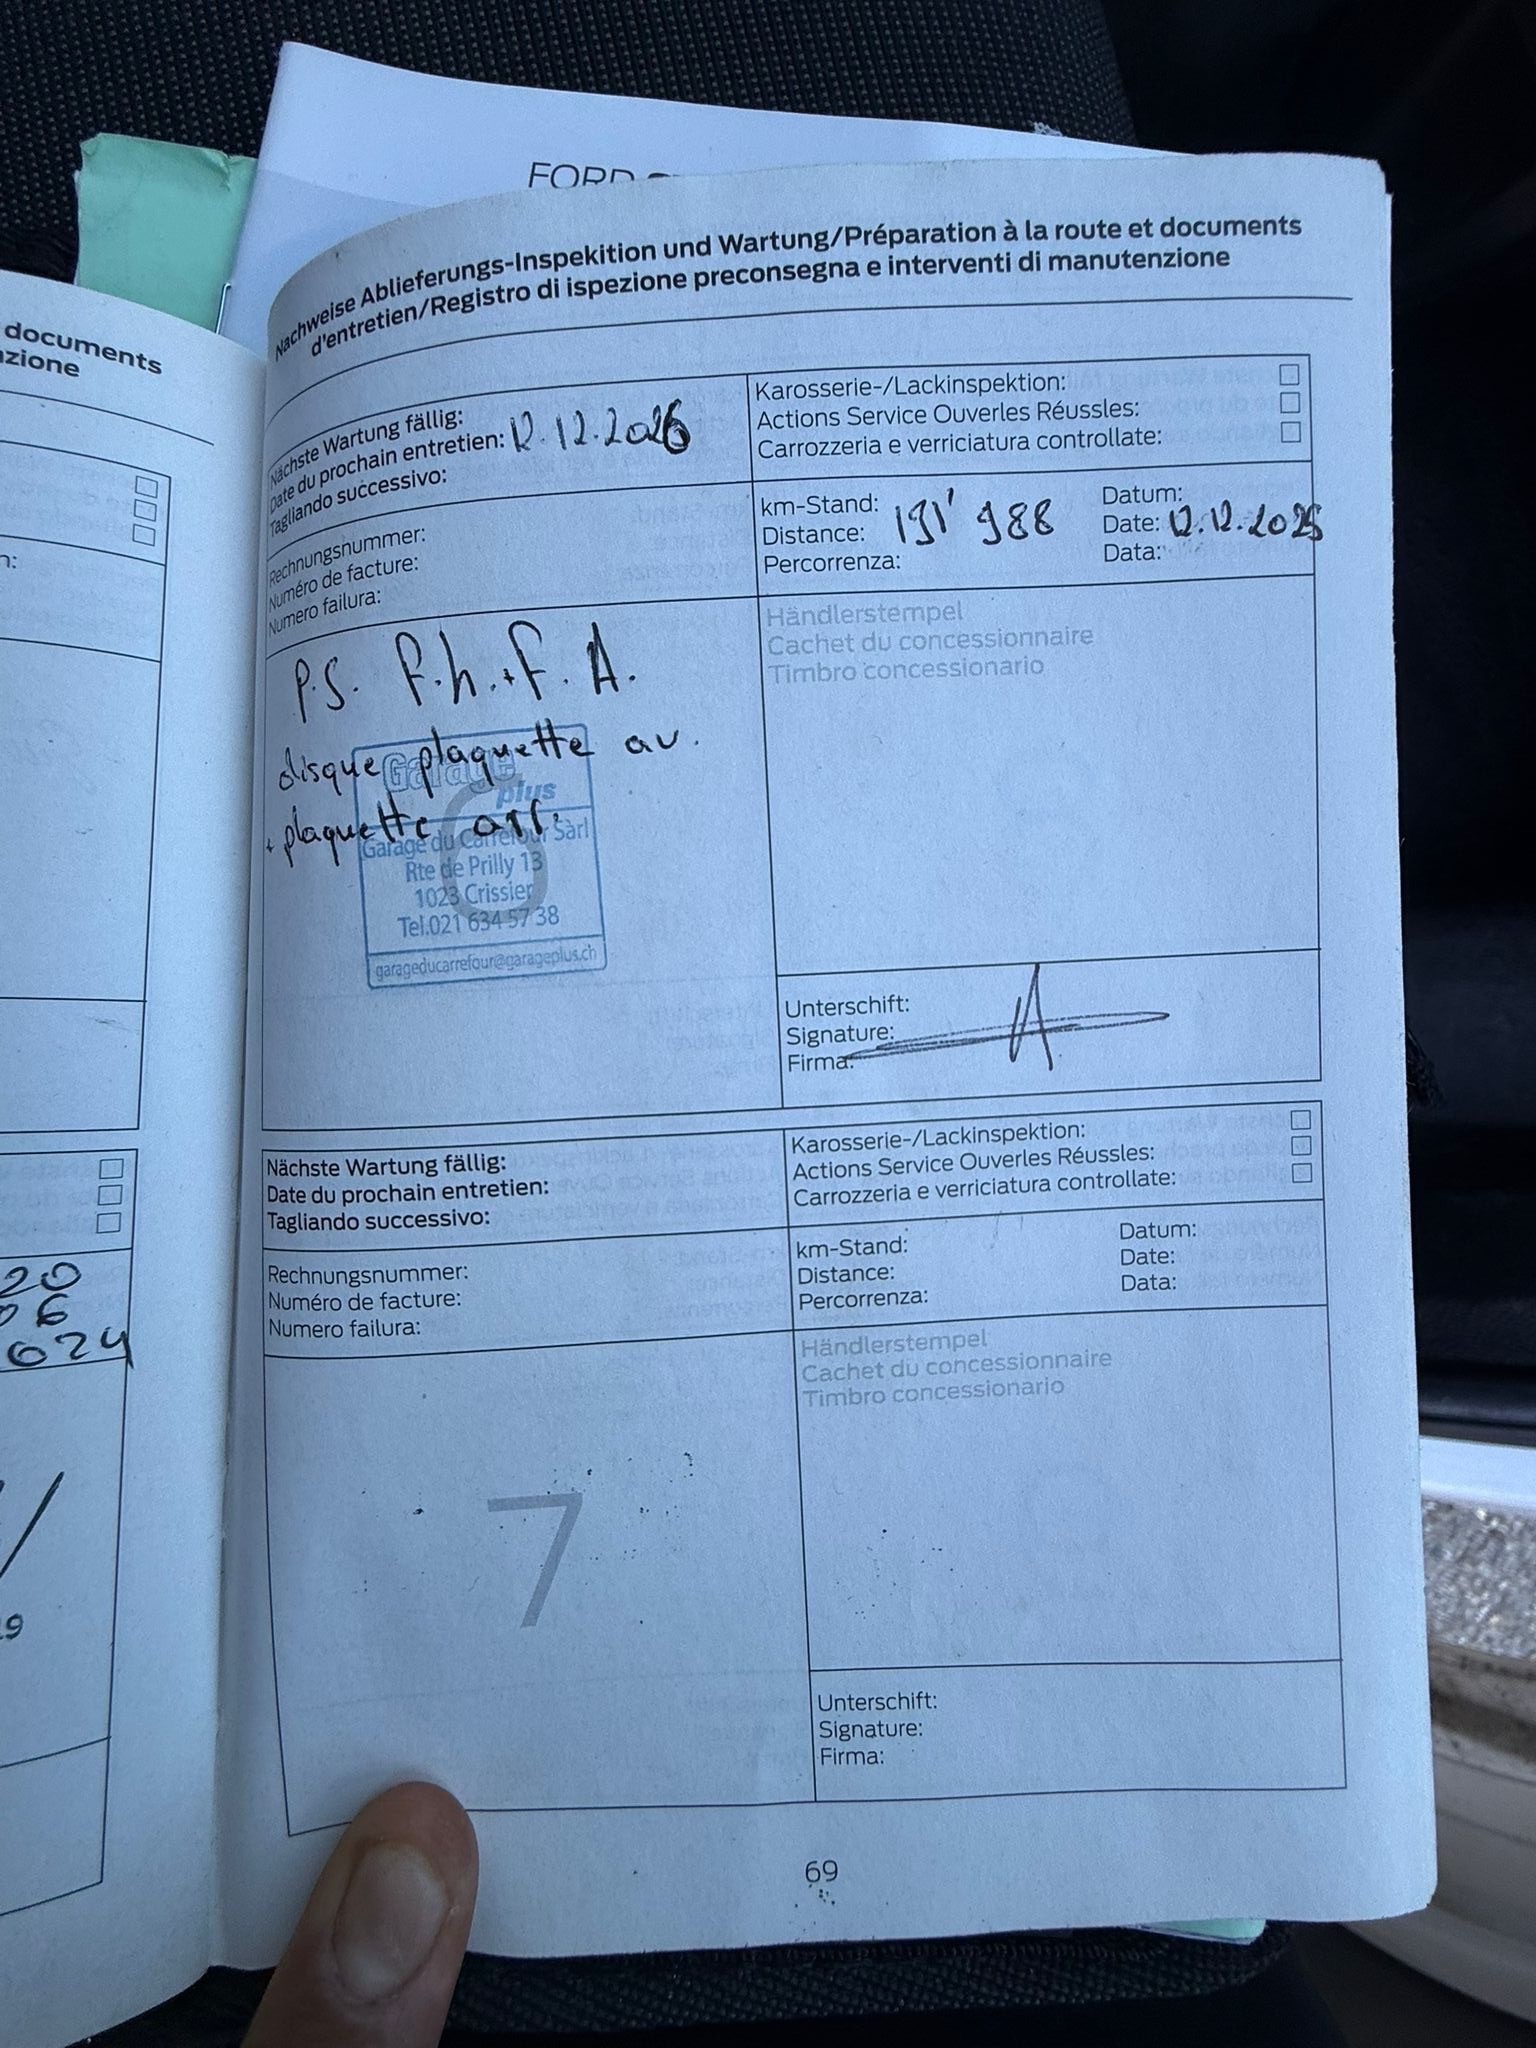 FORD
documents
zione
20
06
024
19
Nachweise Ablieferungs-Inspekition und Wartung/Préparation à la route et documents
d'entretien/Registro di ispezione preconsegna e interventi di manutenzione
Nächste Wartung fällig:
Date du prochain entretien: 12.12.2026
Tagliando successivo:
Karosserie-/Lackinspektion:
Actions Service Ouverles Réussles:
Carrozzeria e verriciatura controllate:
Rechnungsnummer:
Numéro de facture:
Numero failura:
km-Stand:
Distance: 191' 988
Percorrenza:
Datum:
Date: 12.12.2025
Data:
P.S. F.h.+F.A.
disque plaquette av.
+ plaquette arr.
6
Garage
plus
Garage du Carrefour Sàrl
Rte de Prilly 13
1023 Crissier
Tel.021 634 57 38
garageducarrefour@garageplus.ch
Händlerstempel
Cachet du concessionnaire
Timbro concessionario
Unterschift:
Signature:
Firma:
Nächste Wartung fällig:
Date du prochain entretien:
Tagliando successivo:
Karosserie-/Lackinspektion:
Actions Service Ouverles Réussles:
Carrozzeria e verriciatura controllate:
Rechnungsnummer:
Numéro de facture:
Numero failura:
km-Stand:
Distance:
Percorrenza:
Datum:
Date:
Data:
7
Händlerstempel
Cachet du concessionnaire
Timbro concessionario
Unterschift:
Signature:
Firma:
69